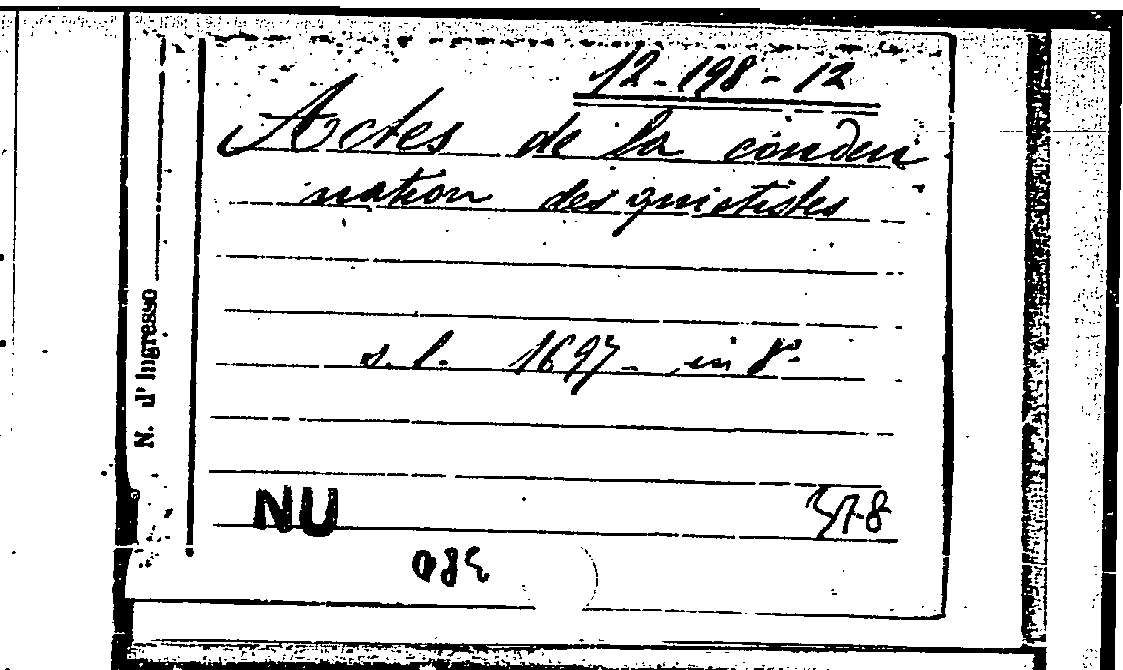 12-198-12
Actes de la conden
nation des quietistes
s. l. 1697 - in 8º
N. d'Ingresso
NU